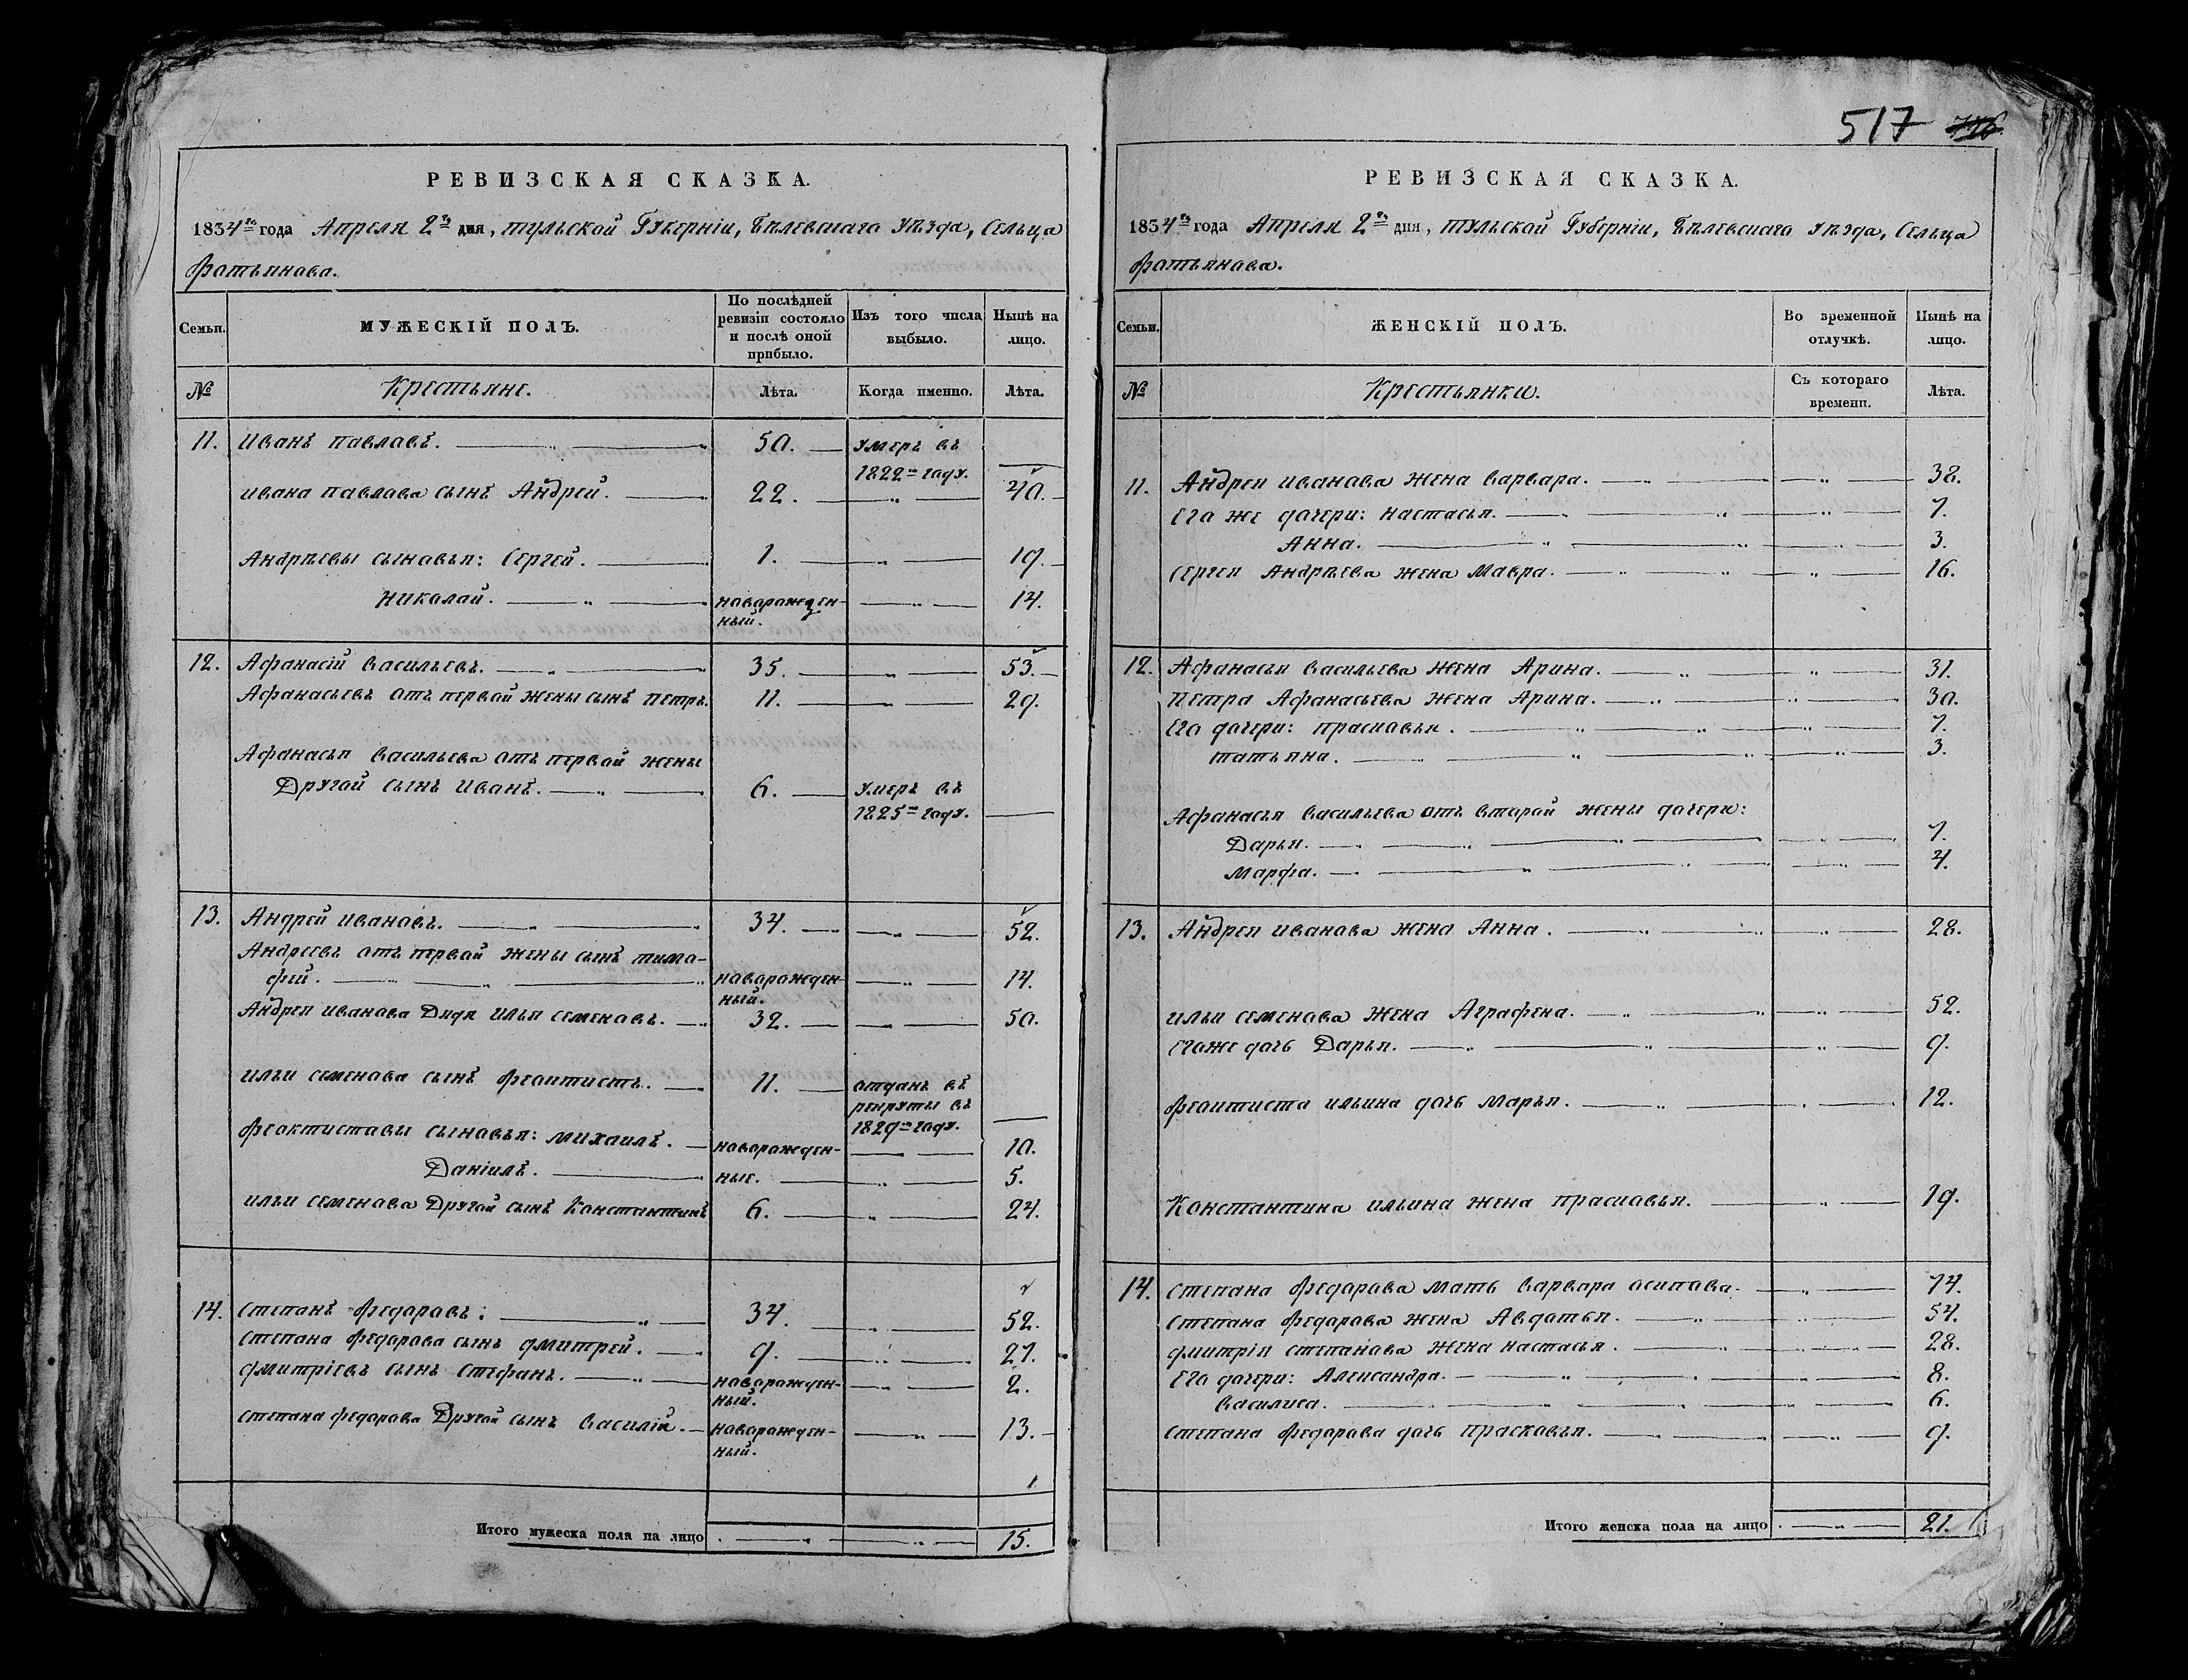 РЕВИЗСКАЯ СКАЗКА.
1834го года Апреля 2го дня, тульской Губерніи, Бѣлевскаго Уѣзда, Сельца
Фатьянова.
Семьи.
МУЖЕСКІЙ ПОЛЪ.
По послѣдней ревизіи состояло и послѣ оной прибыло.
Изъ того числа выбыло.
Нынѣ на лицо.
№ Крестьяне. Лѣта. Когда именно. Лѣта.
11. Иванъ павлавъ. 50. умеръ въ
1822м году.
ивана павлава сынъ Андрей. 22. 40.
Андрѣевы сынавья: Сергей. 1. 19.
Николай. наварожден-
ный. 14.
12. Афанасій васильевъ. 35. 53.
Афанасьевъ отъ первай жены сынъ петръ. 11. 29.
Афанасья васильева отъ первай жены
Другой сынъ иванъ. 6. умеръ въ
1825м году.
13. Андрей ивановъ. 34. 52.
Андреевъ отъ первай жены сынъ тима-
фей. наварожден-
ный. 14.
Андрея иванова Дядя илья семеновъ. 32. 50.
ильи семенава сынъ феоктистъ. 11. отданъ въ
рекруты въ
1829м году.
феоктиставы сынавья: михаилъ. наварожден- 10.
Даніилъ. ные. 5.
ильи семенава Другой сынъ Константинъ 6. 24.
14. степанъ федаравъ. 34. 52.
степана федарова сынъ дмитрей. 9. 27.
дмитріевъ сынъ стефанъ. наварожден-
ный. 2.
степана федарава Другой сынъ василій. наварожден-
ный. 13.
Итого мужеска пола на лицо 15.
517
РЕВИЗСКАЯ СКАЗКА.
1834го года Апреля 2го дня, тульской Губерніи, Бѣлевскаго уѣзда, Сельца
фатьянова.
Семьи.
ЖЕНСКІЙ ПОЛЪ.
Во временной отлучкѣ.
Нынѣ на лицо.
№ Крестьянки. Съ котораго времени. Лѣта.
11. Андрея иванава жена варвара. 38.
Его же дочери: настасья. 7.
Анна. 3.
сергея Андрѣева жена мавра. 16.
12. Афанасья васильева жена Арина. 31.
петра Афанасьева жена Арина. 30.
Его дочери: прасковья. 7.
татьяна. 3.
Афанасья васильева отъ втарай жены дочери:
Дарья. 7.
марфа. 4.
13. Андрея иванава жена Анна. 28.
ильи семенава жена Аграфена. 52.
Егоже дочь Дарья. 9.
феоктиста ильина дочь марья. 12.
Константина ильина жена прасковья. 19.
14. степана федарава мать варвара осипава. 74.
степана федарава жена Авдатья. 54.
дмитрія степанава жена настасья. 28.
Его дочери: Александра. 8.
василиса. 6.
степана федарава дочь прасковья. 9.
Итого женска пола на лицо 21.